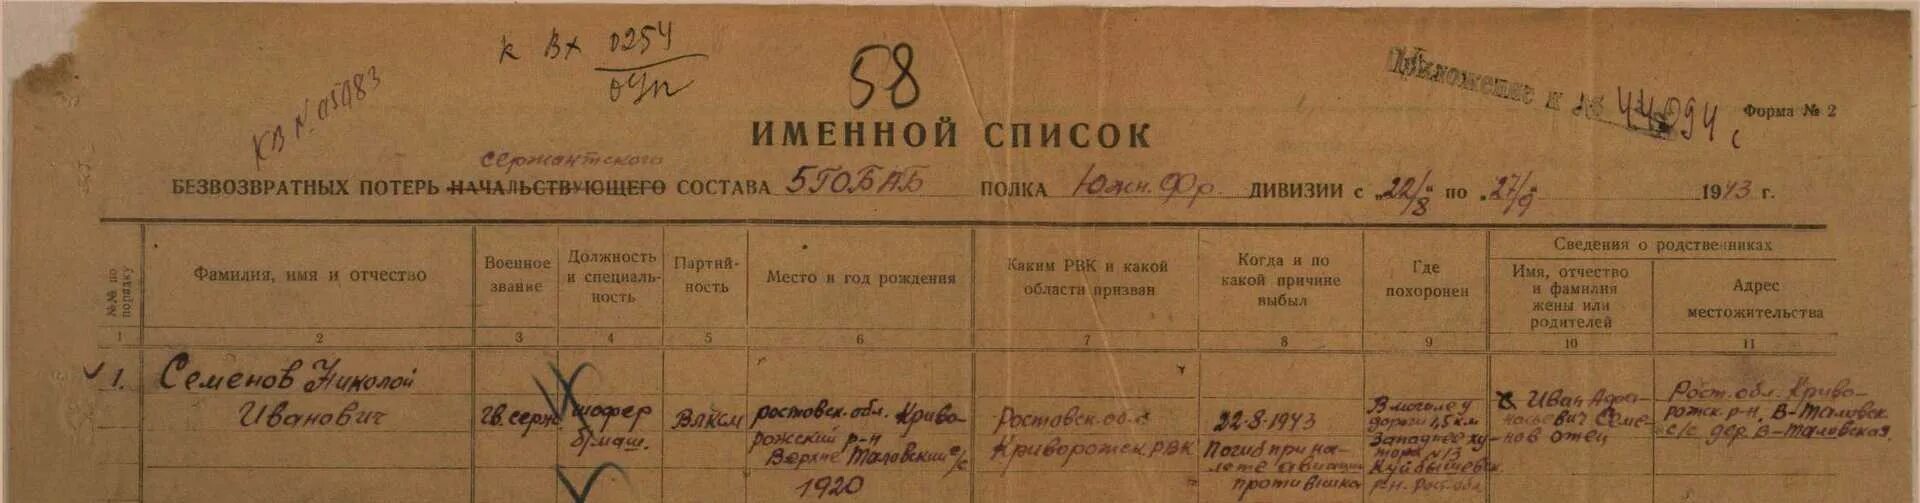 к Вх 0254
58
КВ № 05083
Приложение к № 44094 с
Форма № 2
ИМЕННОЙ СПИСОК
сержантского
БЕЗВОЗВРАТНЫХ ПОТЕРЬ НАЧАЛЬСТВУЮЩЕГО СОСТАВА 5ГОБАБ ПОЛКА Южн. Фр. ДИВИЗИИ С „22/8" по „27/9" 1943 г.
№№ по порядку
Фамилия, имя и отчество
Военное звание
Должность и специаль-ность
Партий-ность
Место и год рождения
Каким РВК и какой области призван
Когда и по какой причине выбыл
Где похоронен
Сведения о родственниках
Имя, отчество и фамилия жены или родителей
Адрес местожительства
1 2 3 4 5 6 7 8 9 10 11
1. Семёнов Николай
Иванович
гв. серж.
шофер
б/маш.
Влксм
ростовск. обл. Криво-
рожский р-н
Верхне Таловский с/с
1920
Ростовск. обл.
Криворожск. РВК
22-8-1943
Погиб при на-
лете авиации
противника
В могиле у
дороги 1,5 км
Западнее ху-
тора №13
Куйбышевск.
р-н. Рост обл
Иван Афа-
насьевич Семе-
нов отец
Рост. обл. Криво-
рожск. р-н, В-Таловск.
с/с дер. В-Таловская.